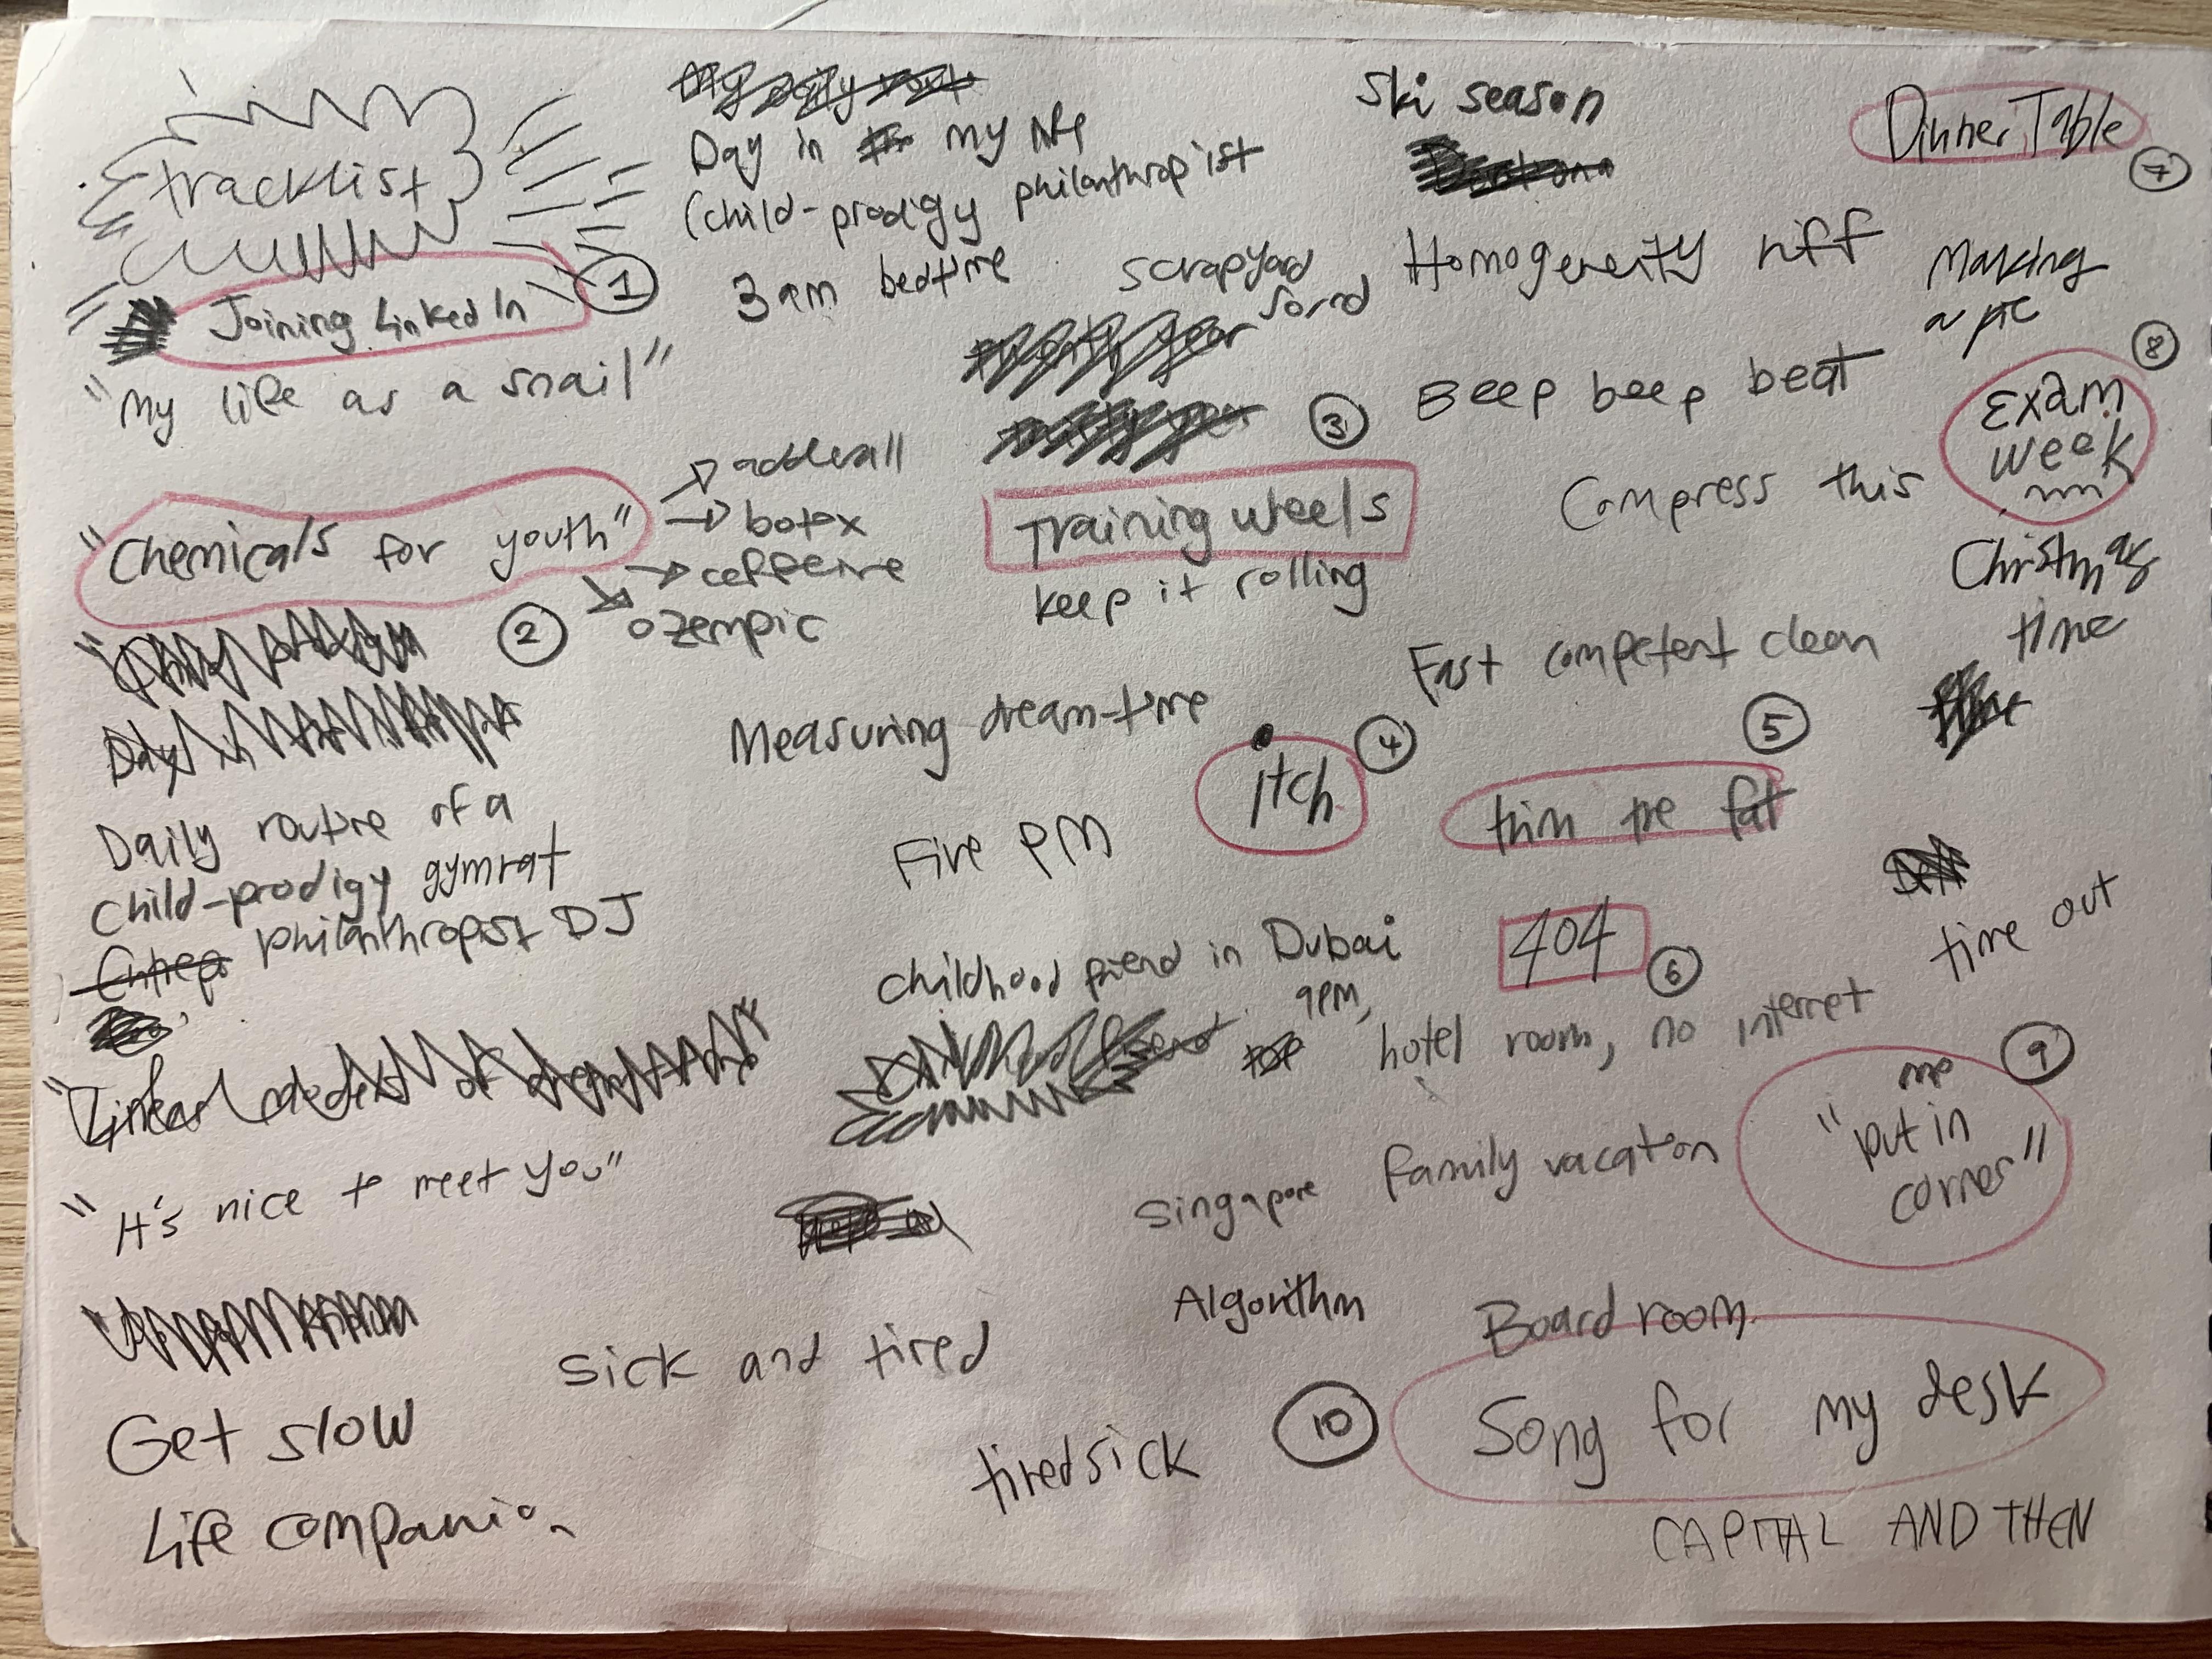 tracklist
Joining LinkedIn
1
"My life as a snail"
"Chemicals for youth"
2
adderall
botox
caffeine
ozempic
Daily routine of a
child-prodigy gymrat
philanthropist DJ
"It's nice to meet you"
Get slow
Life companion
Day in my life
(child-prodigy philanthropist
3am bedtime
scrapyard
sound
3
Training wheels
keep it rolling
Measuring dream-time
itch
4
Five PM
Childhood friend in Dubai
Sick and tired
tiredsick
Ski season
Homogeneity riff
Beep beep beat
Compress this
Fast competent clean
5
trim the fat
404
6
9PM,
hotel room, no internet
Singapore family vacation
Algorithm
Board room
10
Song for my desk
CAPITAL AND THEN
Dinner Table
7
Making
a pie
8
Exam
week
Christmas
time
time out
9
me
"put in
corner"